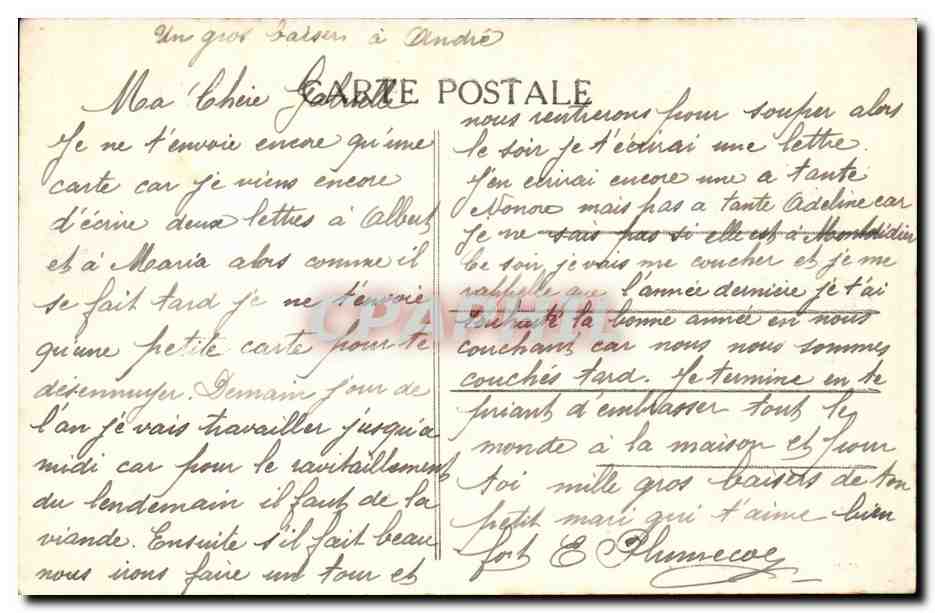 Un gros baisers à André
CARTE POSTALE
Ma Chère
Je ne t'envoie encore qu'une
carte car je viens encore
d'écrire deux lettres à Albert
et à Maria alors comme il
se fait tard je ne t'envoie
qu'une petite carte pour te
désennuyer. Demain jour de
l'an je vais travailler jusqu'a
midi car pour le ravitaillement
du lendemain il faut de la
viande. Ensuite s'il fait beau
nous irons faire un tour et
nous rentrerons pour souper alors
le soir je t'écrirai une lettre.
J'en ecrirai encore une a tante
Nonore mais pas a tante Adeline car
je ne sais pas si elle est à Montdidier
Ce soir, je vais me coucher et je me
rappelle que l'année dernière je t'ai
souhaité la bonne année en nous
couchant car nous nous sommes
couchés tard. Je termine en te
priant d'embrasser tout le
monde à la maison et pour
toi mille gros baisers de ton
petit mari qui t'aime bien
fort E Plumecoq
CPARAMA